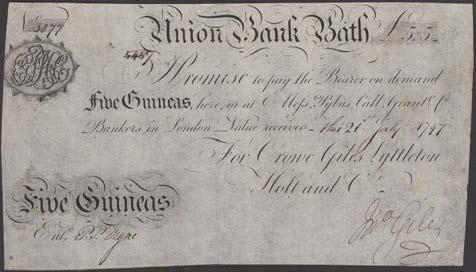 No. 3077 Union Bank Bath £5.5.
I Promise to pay the Bearer on demand
Five Guineas, here, or at Messrs. Pybus, Call, Grant & Co.
Bankers in London Value received this 21st July 1797
For Crowe Giles Lyttleton
Holt and Co.
Five Guineas
Entd.
Jno Giles